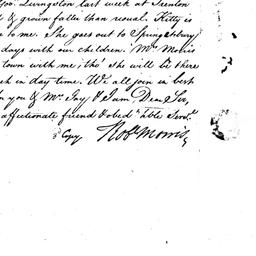 Gov. Livingston last week at Trenton
& grown fatter than usual. Kitty is
to me. She goes out to Springetsbury
days with our children. Mrs Morris
town with me; tho' she will be there
ch in day time. We all join in best
you & Mrs Jay & I am, Dear Sir,
affectionate friend & obed Hble Servt
Copy Robt Morris